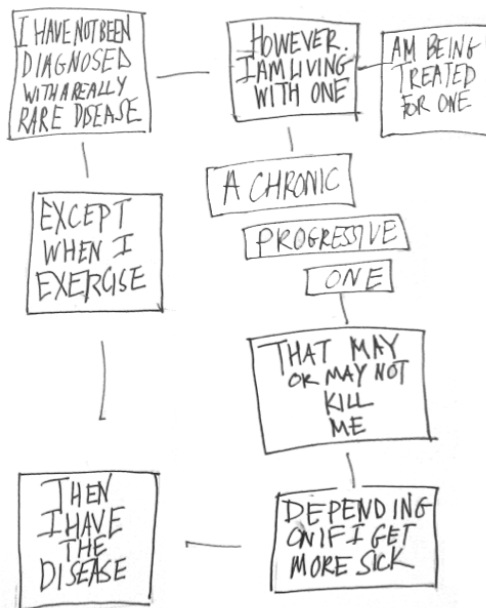 I HAVE NOT BEEN
DIAGNOSED
WITH A REALLY
RARE DISEASE
HOWEVER.
I AM LIVING
WITH ONE
AM BEING
TREATED
FOR ONE
A CHRONIC
PROGRESSIVE
ONE
THAT MAY
OR MAY NOT
KILL
ME
DEPENDING
ON IF I GET
MORE SICK
THEN
I HAVE
THE
DISEASE
EXCEPT
WHEN I
EXERCISE